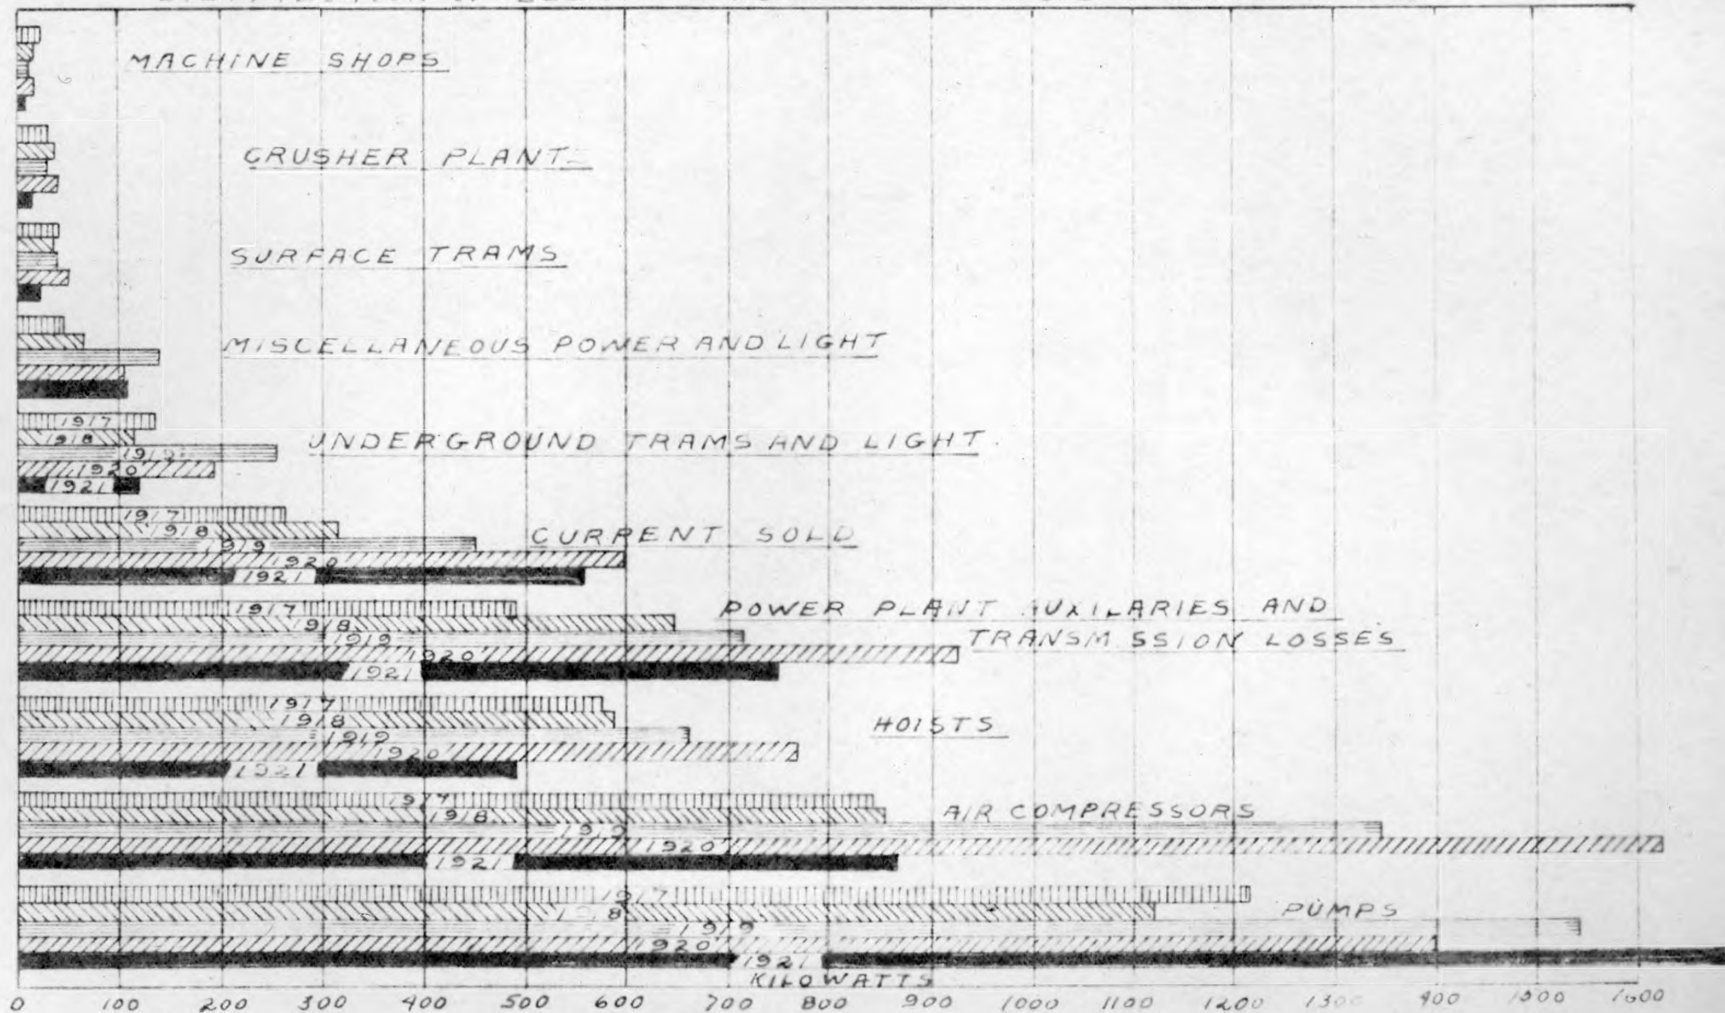 MACHINE SHOPS
CRUSHER PLANT
SURFACE TRAMS
MISCELLANEOUS POWER AND LIGHT
1917
1918
1919
1920
1921
UNDERGROUND TRAMS AND LIGHT.
1917
1918
1919
1920
1921
CURRENT SOLD
1917
918
1919
1920
1921
POWER PLANT AUXILARIES AND
TRANSM SSION LOSSES
1917
1918
1919
1920
1921
HOISTS
1917
1918
1919
1920
1921
AIR COMPRESSORS
1917
1918
1919
1920
1921
PUMPS
KILOWATTS
0 100 200 300 400 500 600 700 800 900 1000 1100 1200 1300 400 1500 1600